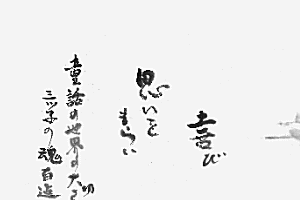 喜び
思いを
もらい
童話の世界の大切
三ツ子の魂百迄